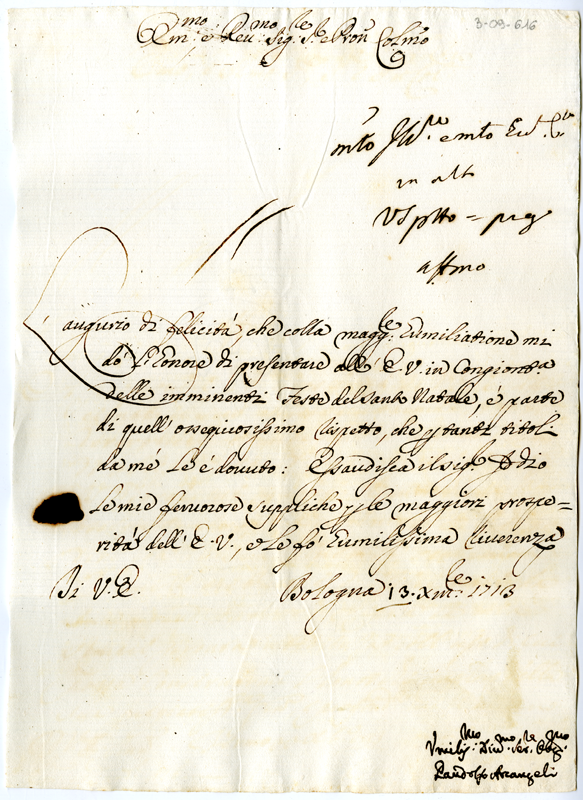 3-09-616
Em.mo e Rev.mo Sig.re S.r e Pron Colmo
mto Ill.re e mto Rev.
in alt
VS ptto = preg
affmo
L'augurio di felicità, che colla magg.le Eumiliatione mi
dò l'onore di presentare all'E.V. in congiont.a
delle imminenti Feste del Santo Natale, è parte
di quell'ossequiosissimo rispetto, che p tanti titoli
da mé Le é dovuto: Essaudisca il sig.re Iddio
Le mie fervorose suppliche p le maggiori prospe=
rità dell'E.V., e Le fò Eumilissima riverenza
Di V.E. Bologna 13. Xm.re 1713
Vmilis.mo Div.mo Ser.re Obg.mo
Pandolfo Arcangeli